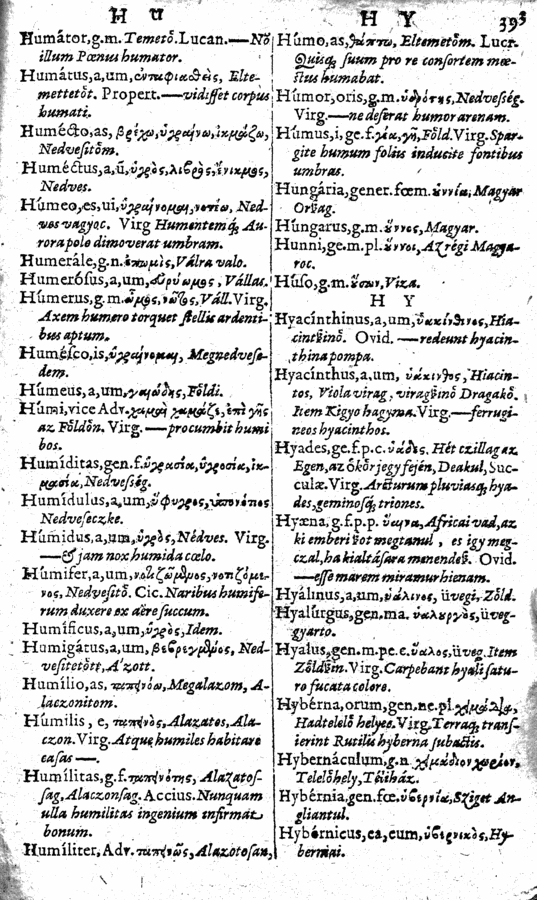 H u
H Y
393
Humátor, g.m. Temetȏ. Lucan.—Nõ
illum Pœnus humator.
Humátus, a, um, ἐνταφιασθεὶς, Elte-
mettetȏt. Propert.—vidisset corpus
humati.
Humécto, as, βρέχω, ὑγραίνω, ἰκμάζω,
Nedvesitȏm.
Huméctus, a, ũ, ὑγρὸς, λιβρὸς, ἔνικμος,
Nedves.
Húmeo, es, ui, ὑγραίνομαι, νοτίω, Ned-
ves vagyoc. Virg Humentemq́; Au-
rora polo dimoverat umbram.
Humerále, g.n. ἐπωμὶς, Válra valo.
Humerósus, a, um, εὐρύωμος, Vállas.
Húmerus, g.m. ὦμος, νῶτος, Váll. Virg.
Axem humero torquet stellis ardenti-
bus aptum.
Humésco, is, ὑγραίνομαι, Megnedvese-
dem.
Húmeus, a, um, γαιώδης, Fȏldi.
Húmi, vice Adv. χαμαὶ χαμᾶζε, ἐπὶ γῆς
az Fȏldȏn. Virg.—procumbit humi
bos.
Humíditas, gen. f. ὑγρασία, ὑγροσία, ἰκ-
μασία, Nedvesség.
Humídulus, a, um, ὕφυγρος, ὑπονότιος
Nedveseczke.
Húmidus, a, um, ὑγρὸς, Nédves. Virg.
—& jam nox humida cœlo.
Húmifer, a, um, νοτιζόμενος,
nos, Nedvesitȏ. Cic. Naribus humife-
rum duxere ex aëre succum.
Humíficus, a, um, ὑγρὸς, Idem.
Humigátus, a, um, βεβρεγμένος, Ned-
vesitetȏtt, A'zott.
Humílio, as, ταπεινόω, Megalazom, A-
laczonitom.
Húmilis, e, ταπεινὸς, Alazatos, Ala-
czon. Virg. Atque humiles habitare
casas —.
Humílitas, g.f. ταπεινότης, Alazatos-
sag, Alaczonsag. Accius. Nunquam
ulla humilitas ingenium infirmat
bonum.
Humíliter, Adv. ταπεινῶς, Alazotosan,
Húmo, as, θάπτω, Eltemetȏm. Lucr.
Quisq; suum pro re consortem mœ-
stus humabat.
Húmor, oris, g.m. ὑγρότης, Nedvesség.
Virg.—ne deserat humor arenam.
Húmus, i, ge. f. γαῖα, γῆ, Fȏld. Virg. Spar-
gite humum foliis inducite fontibus
umbras.
Hungária, gener. fœm. ὑννία, Magyar
Orszag.
Húngarus, g.m. ὕννος, Magyar.
Hunni, ge. m. pl. ὕννοι, Az régi Magya-
roc.
Húso, g.m. ὕσων, Viza.
H Y
Hyacínthinus, a, um, ὑακίνθινος, Hia-
cintszinȏ. Ovid.—redeunt hyacin-
thina pompa.
Hyacínthus, a, um, ὑάκινθος, Hiacin-
tos, Viola virag, viragszinȏ Dragakȏ.
Item Kigyo hagyma. Virg.—ferrugi-
neos hyacinthos.
Hyades, ge. f. p.c. ὑάδες. Hét czillag az
Egen, az ȏkȏr jegy fején, Deakul, Suc-
culæ. Virg. Arcturum pluviasq; hya-
des, geminosq́; triones.
Hyæna, g. f. p.p. ὕαινα, Africai vad, az
ki emberi szot megtanul, es igy meg-
czal, ha kialtásara menendesz. Ovid.
—esse marem miramur hienam.
Hyálinus, a, um, ὑάλινος, üvegi, Zȏld.
Hyalúrgus, gen. ma. ὑαλουργὸς, üveg-
gyarto.
Hyalus, gen. m. pe. c. ὕαλος, üveg. Item
Zȏldszin. Virg. Carpebant hyali satu-
ro fucata colore.
Hybérna, orum, gen. ne. pl. χειμάδια,
Hadtelelȏ helyec. Virg. Terraq; trans-
ierint Rutilis hyberna subactis.
Hybernáculum, g.n. χειμάδιον χωρίον.
Telelȏhely, Teliház.
Hybérnia, gen. fœ. ὑβερνία, Sziget An-
gliantul.
Hybérnicus, ca, cum, ὑβερνικὸς, Hy-
berniai.